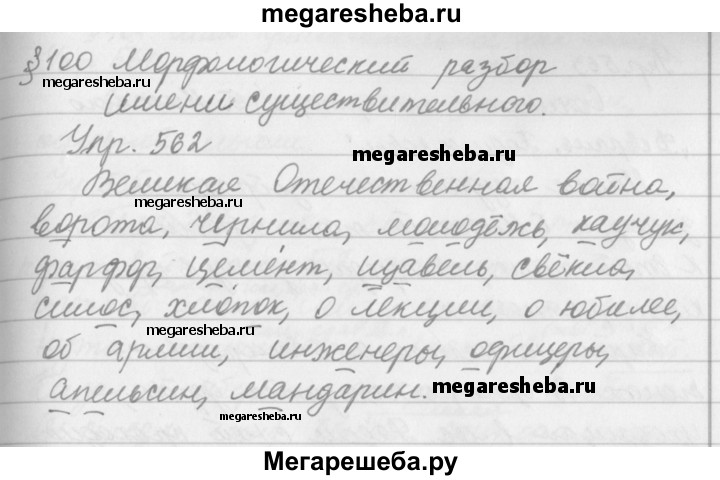 megaresheba.ru
§100 Морфологический разбор
megaresheba.ru
имени существительного.
Упр. 562
megaresheba.ru
Великая Отечественная война,
megaresheba.ru
ворота, чернила, молодёжь, каучук,
фарфор, цемент, щавель, свёкла,
силос, хлопок, о лекции, о юбилее,
megaresheba.ru
об армии, инженеры, офицеры,
апельсин, мандарин.
megaresheba.ru
megaresheba.ru
Мегарешеба.ру